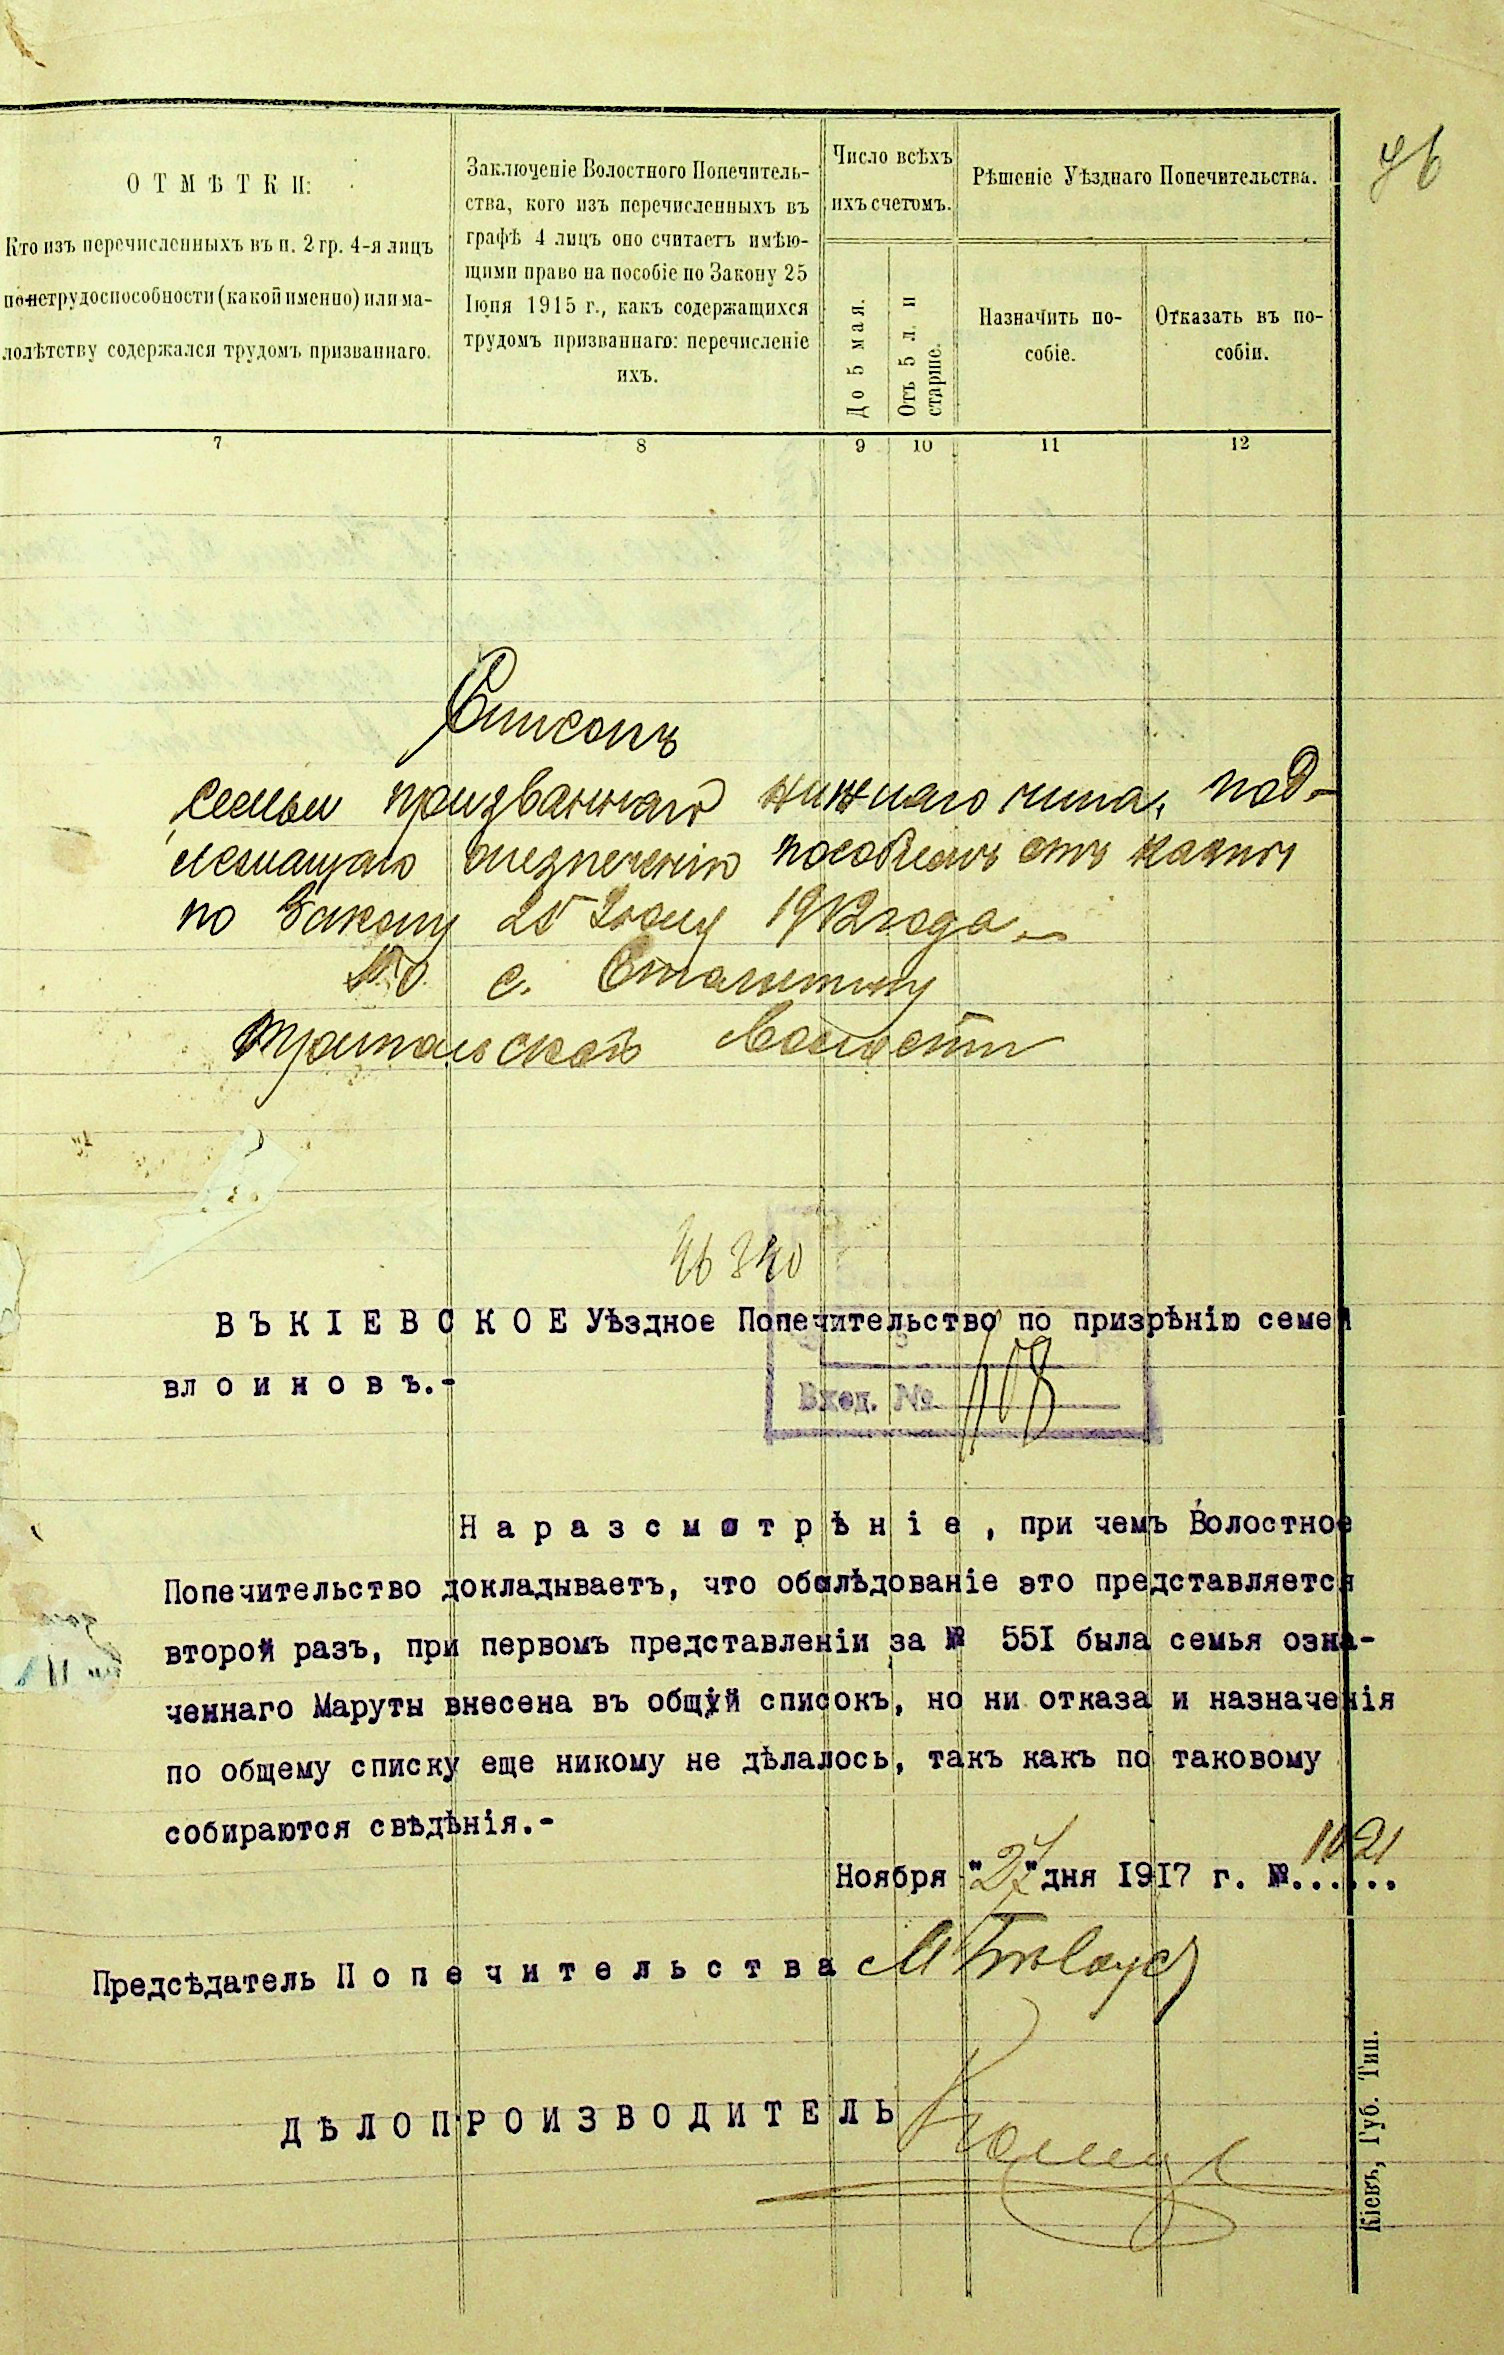 ОТМѢТКИ:
Кто изъ перечисленныхъ въ п. 2 гр. 4-я лицъ
по нетрудоспособности (какой именно) или ма-
лолѣтству содержался трудомъ призваннаго.
Заключеніе Волостного Попечитель-
ства, кого изъ перечисленныхъ въ
графѣ 4 лицъ оно считаетъ имѣю-
щими право на пособіе по Закону 25
Іюня 1915 г., какъ содержащихся
трудомъ призваннаго: перечисленіе
ихъ.
Число всѣхъ
ихъ счетомъ.
До 5 мая.
Отъ 5 л. и
старше.
Рѣшеніе Уѣзднаго Попечительства.
Назначить по-
собіе.
Отказать въ по-
собіи.
7 8 9 10 11 12
Списокъ
семьи призваннаго нижняго чина, под-
лежащаго обезпеченію пособіемъ отъ казны
по Закону 25 Іюня 1912 года.
По с. Стайкамъ
Трипольской Волости
ВЪ КІЕВСКОЕ Уѣздное Попечительство по призрѣнію семей
вл о и н о в ъ.-
Вход. № 108
На разсмотрѣніе, при чемъ Волостное
Попечительство докладываетъ, что обслѣдованіе это представляется
второй разъ, при первомъ представленіи за № 551 была семья озна-
ченнаго Маруты внесена въ общій списокъ, но ни отказа и назначенія
по общему списку еще никому не дѣлалось, такъ какъ по таковому
собираются свѣдѣнія.-
Ноября "27" дня 1917 г. №...... 1021
Предсѣдатель Попечительства
ДѢЛОПРОИЗВОДИТЕЛЬ
Кіевъ, Губ. Тип.